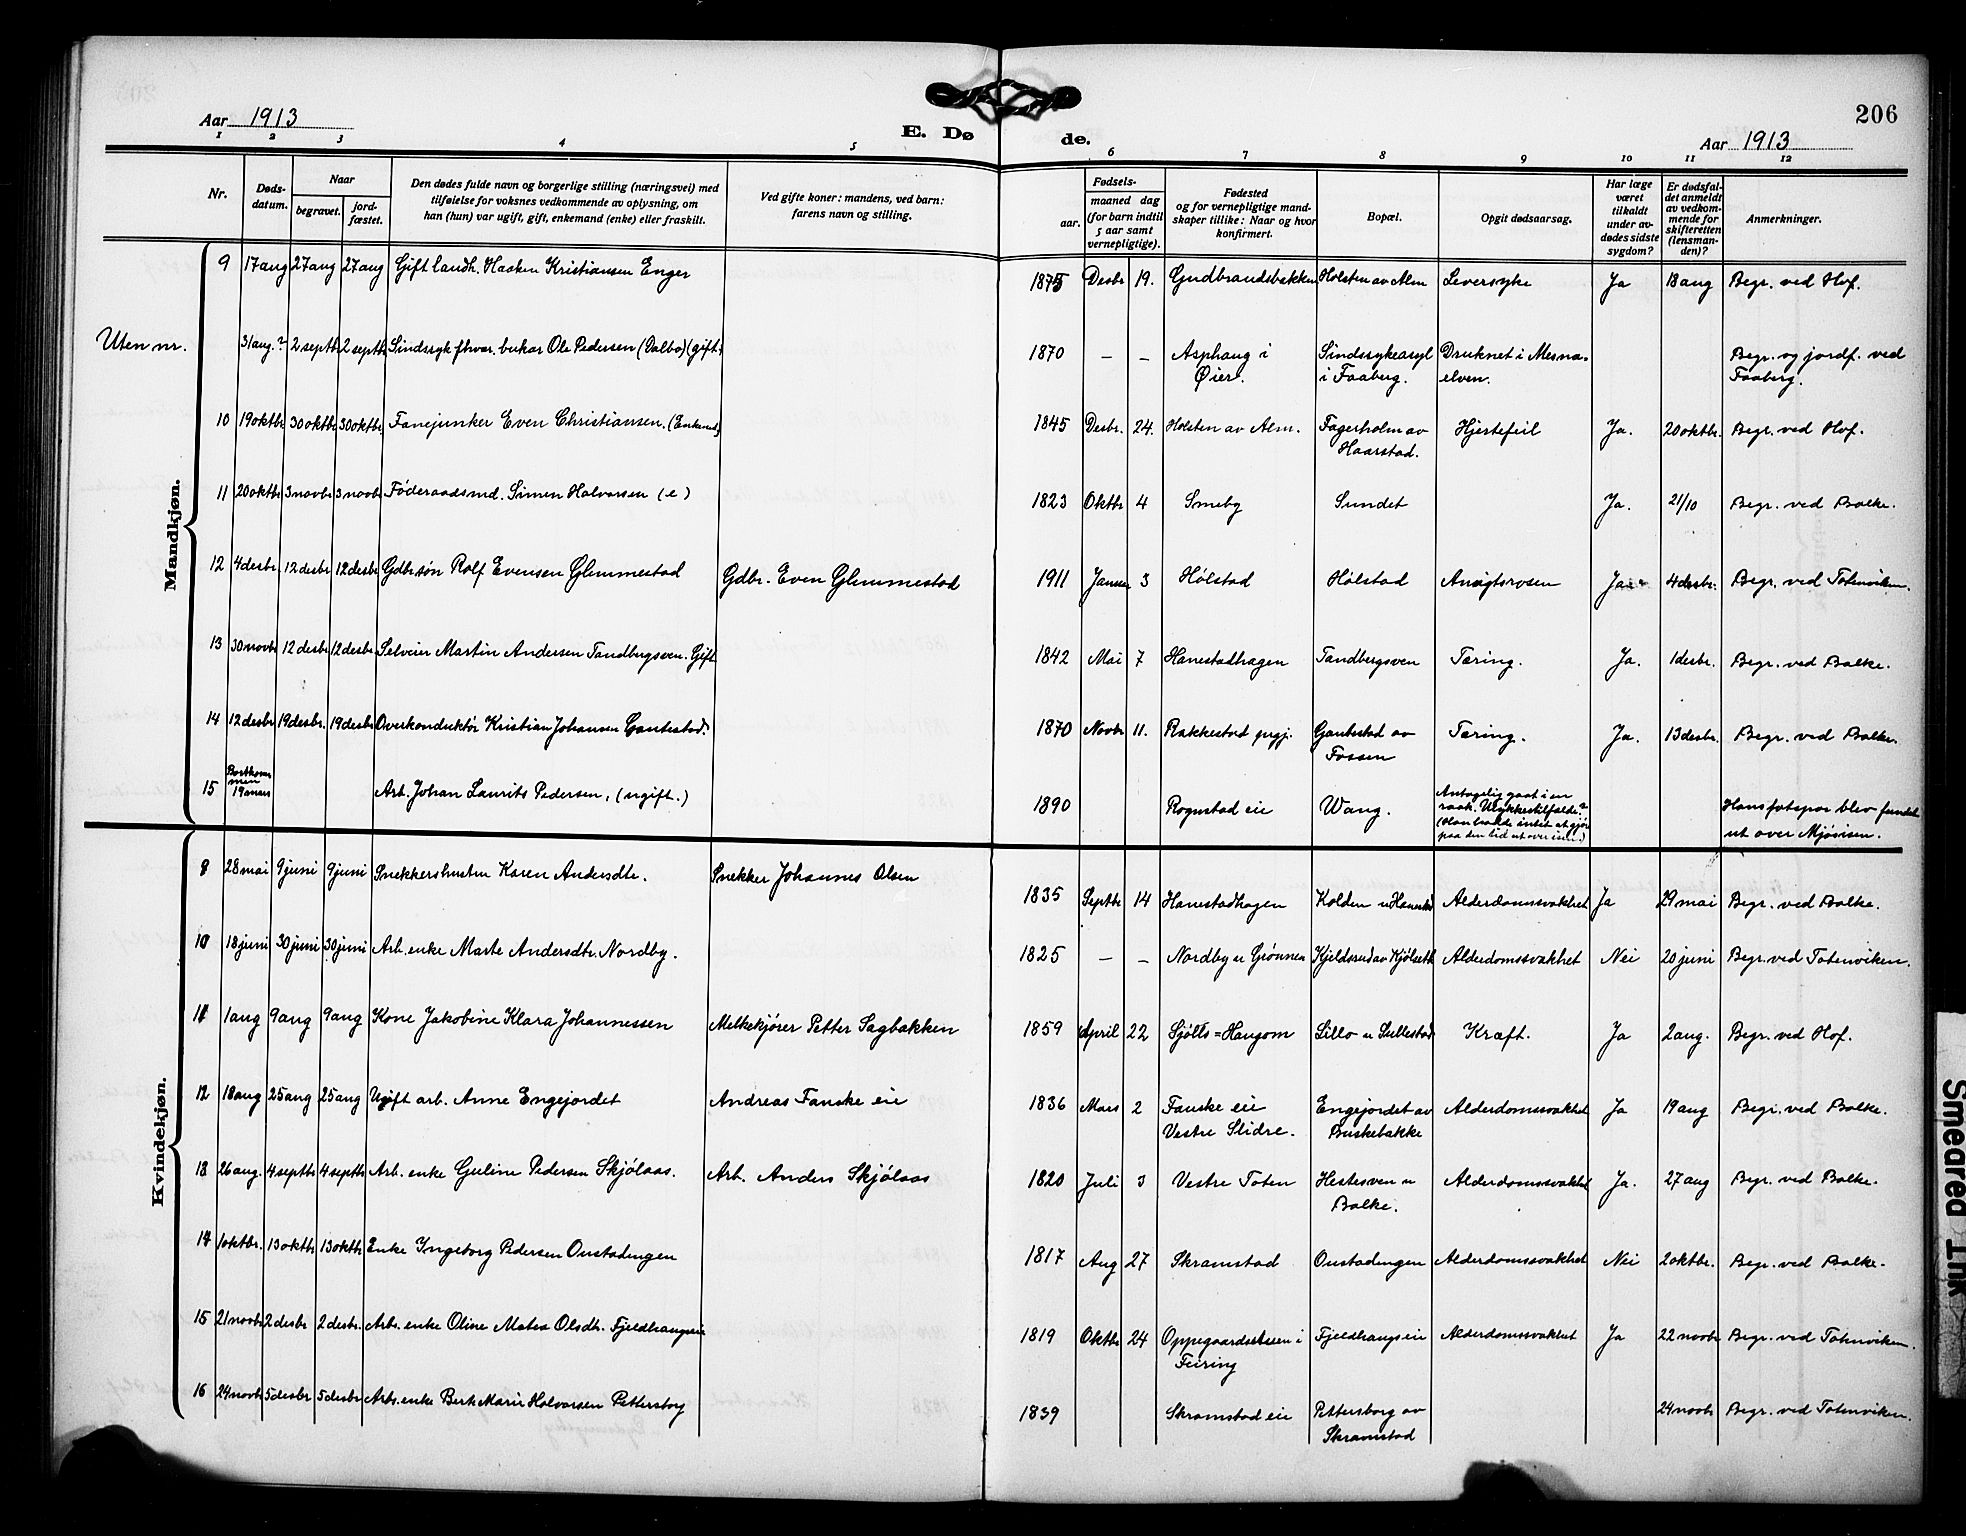 206
Aar 1913
E. Døde.
Aar 1913
1 2 3 4 5 6 7 8 9 10 11 12
Nr.
Døds-
datum.
Naar
begravet.
jord-
fæstet.
Den dødes fulde navn og borgerlige stilling (næringsvei) med
tilføielse for voksnes vedkommende av oplysning, om
han (hun) var ugift, gift, enkemand (enke) eller fraskilt.
Ved gifte koner: mandens, ved barn:
farens navn og stilling.
Fødsels-
aar.
maaned dag
(for barn indtil
5 aar samt
vernepligtige).
Fødested
og for vernepligtige mand-
skaper tillike: Naar og hvor
konfirmert.
Bopæl.
Opgit dødsaarsag.
Har læge
været
tilkaldt
under av-
dødes sidste
sygdom?
Er dødsfal-
det anmeldt
av vedkom-
mende for
skifteretten
(lensman-
den)?
Anmerkninger.
Mandkjøn.
9 17 aug 27 aug 27 aug Gift landh. Haaken Kristiansen Enger 1875 Desbr 19. Gudbrandsbakken Holsten av Alm Leversyke Ja 18 aug Begr. ved Hof.
Uten nr. 31 aug.? 2 septbr 2 septbr Sindssyk fhvar. bukar Ole Pedersen (Dalbo) (gift) 1870 — — Asphaug i Sindssykeasyl Druknet i Mesna- Begr. og jordf. ved
Øier. i Faaberg. elven. Faaberg.
10 19 oktbr 30 oktbr 30 oktbr. Fanejunker Even Christiansen. (Enkemd) 1845 Desbr. 24. Holsten av Alm. Fagerholm av Hjertefeil Ja. 20 oktbr. Begr. ved Hof.
Haarstad.
11 20 oktbr 3 novbr 3 novbr Föderaadsmd. Simen Halvorsen (e) 1823 Oktbr 4 Smeby Sundet Ja. 21/10 Begr. ved Balke.
12 4 desbr. 12 desbr 12 desbr Gdbr. søn Rolf Evensen Glemmestad Gdbr. Even Glemmestad 1911 Januar 3 Hölstad Hölstad Ansigtsrosen Ja 4 desbr. Begr. ved Totenviken.
13 30 novbr 12 desbr 12 desbr. Selveier Martin Andersen Tandbergsven. Gift 1842 Mai 7 Hanestadhagen Tandbergsven Tæring. Ja. 1 desbr. Begr. ved Balke.
14 12 desbr 19 desbr. 19 desbr Overkonduktør Kristian Johansen Gaukestad. 1870 Novbr 11. Rakkestad prgj. Gaukestad av Tæring. Ja. 13 desbr. Begr. ved Balke.
Fossen
15 Bortkom-
men
19 mars Arb. Johan Laurits Pedersen, (ugift.) 1890 Rognstad eie Wang. Antagelig gaat i en
raak. Ulykkestilfælde?
(Han hadde intet at gjøre
paa den tid ut over isen.) Hans fotspor blev fundet
ut over Mjøsisen.
Kvindekjøn.
9 28 mai 9 juni 9 juni Snekkershustru Karen Andersdtr. Snekker Johannes Olsen 1835 Septbr 14 Hanestadhagen Kolden u Hanestad Alderdomssvakhet Ja 29 mai Begr. ved Balke.
10 18 juni 30 juni 30 juni Arb. enke Marte Andersdtr. Nordby. 1825 — — Nordby u Grönnen Kjeldsrud av Kjölseth Alderdomssvakhet Nei 20 juni Begr. ved Totenviken.
11 1 aug 9 aug 9 aug Kone Jakobine Klara Johannessen Melkekjører Petter Sagbakken 1859 April 22 Sjölls=Haugom Lillo u Sullestad Kræft. Ja 2 aug. Begr. ved Hof.
12 18 aug 25 aug 25 aug Ugift arb. Anne Engejordet Andreas Fanske eie 1836 Mars 2 Fanske eie Engejordet av Alderdomssvakhet Ja 19 aug Begr. ved Balke.
Vestre Slidre. Buskebakke
13 26 aug. 4 septbr 4 septbr Arb. enke Guline Pedersen Skjölaas. Arb. Anders Skjölaas 1820 Juli 3 Vestre Toten Hestesven u Alderdomssvakhet Ja. 27 aug Begr. ved Balke.
Balke.
14 1 oktbr. 13 oktbr 13 oktbr Enke Ingeborg Pedersen Onstadengen 1817 Aug 27 Skramstad Onstadengen Alderdomssvakhet Nei 2 oktbr. Begr. ved Balke.
15 21 novbr 2 desbr 2 desbr. Arb. enke Oline Matea Olsdtr. Fjeldhaugseie 1819 Oktbr 24 Oppegaardseteren i Fjeldhaugs eie Alderdomssvakhet Ja 22 novbr Begr. ved Totenviken.
Feiring
16 24 novbr 5 desbr 5 desbr Arb. enke Berte Marie Halvorsen Pettersborg 1839 Skramstad eie Pettersborg av 24 novbr Begr. ved Totenviken.
Skramstad
Smeared Ink